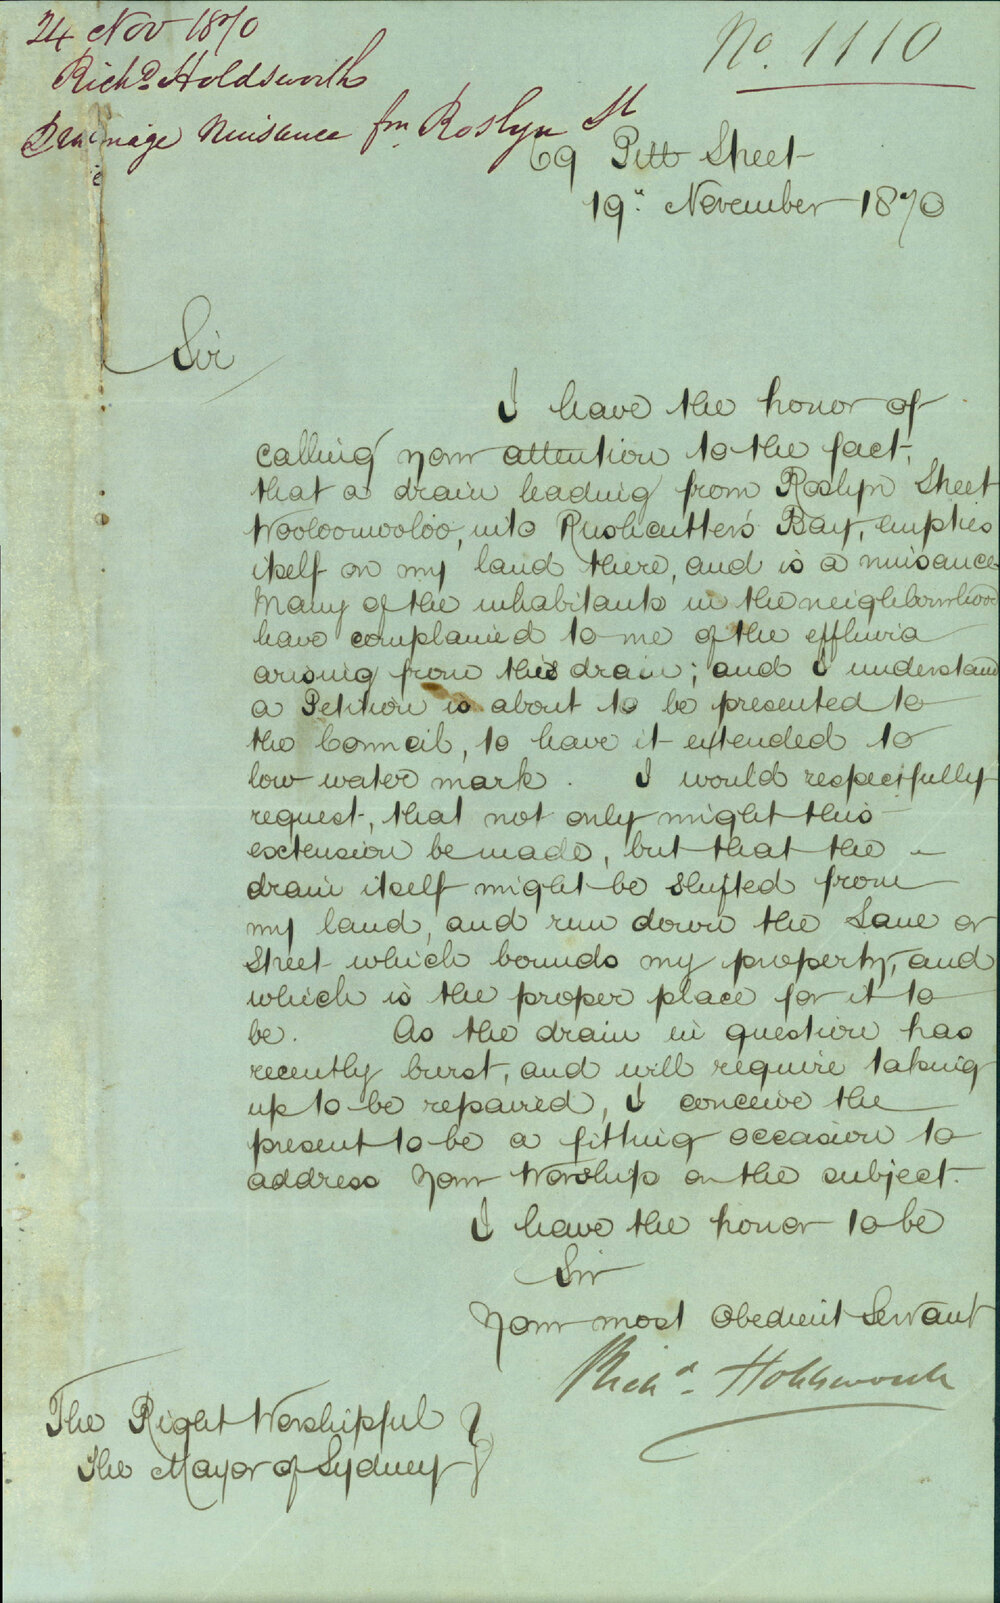 24 Nov 1870
No. 1110
Richd. Holdsworth
Drainage Nuisance fm. Roslyn St
69 Pitt Street
19th November 1870
Sir
I have the honor of
calling your attention to the fact,
that a drain leading from Roslyn Street
Wooloomooloo, into Rushcutter's Bay, empties
itself on my land there, and is a nuisance.
Many of the inhabitants in the neighbourhood
have complained to me of the effluvia
arising from this drain; and I understand
a Petition is about to be presented to
the Council, to have it extended to
low water mark. I would respectfully
request, that not only might this
extension be made, but that the
drain itself might be shifted from
my land, and run down the Lane or
Street which bounds my property, and
which is the proper place for it to
be. As the drain in question has
recently burst, and will require taking
up to be repaired, I conceive the
present to be a fitting occasion to
address Your Worship on the subject.
I have the honor to be
Sir
Your most obedient Servant
Richd. Holdsworth
The Right Worshipful
The Mayor of Sydney